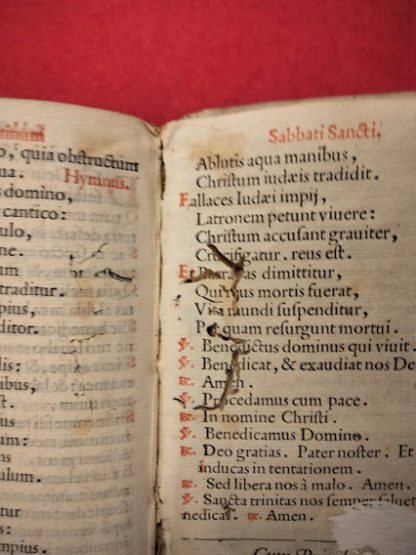 o, quia obstructum
ua. Hymnus.
s domino,
cantico:
ulo,
ne.
um
traditur.
pius,
ditor.
lis:
ibus,
st.
us
um:
ns
ulum.
tur
us
pio.
Sabbati Sancti.
Ablutis aqua manibus,
Christum iudæis tradidit.
Fallaces Iudæi impij,
Latronem petunt viuere:
Christum accusant grauiter,
Crucifigatur. reus est.
Et Barrabas dimittitur,
Qui reus mortis fuerat,
Vita mundi suspenditur,
Per quam resurgunt mortui.
℣. Benedictus dominus qui viuit.
℣. Benedicat, & exaudiat nos De
℟. Amen.
℣. Procedamus cum pace.
℟. In nomine Christi.
℣. Benedicamus Domino.
℟. Deo gratias. Pater noster. Et
inducas in tentationem.
℟. Sed libera nos à malo. Amen.
℣. Sancta trinitas nos semper saluet
nedicat. ℟. Amen.